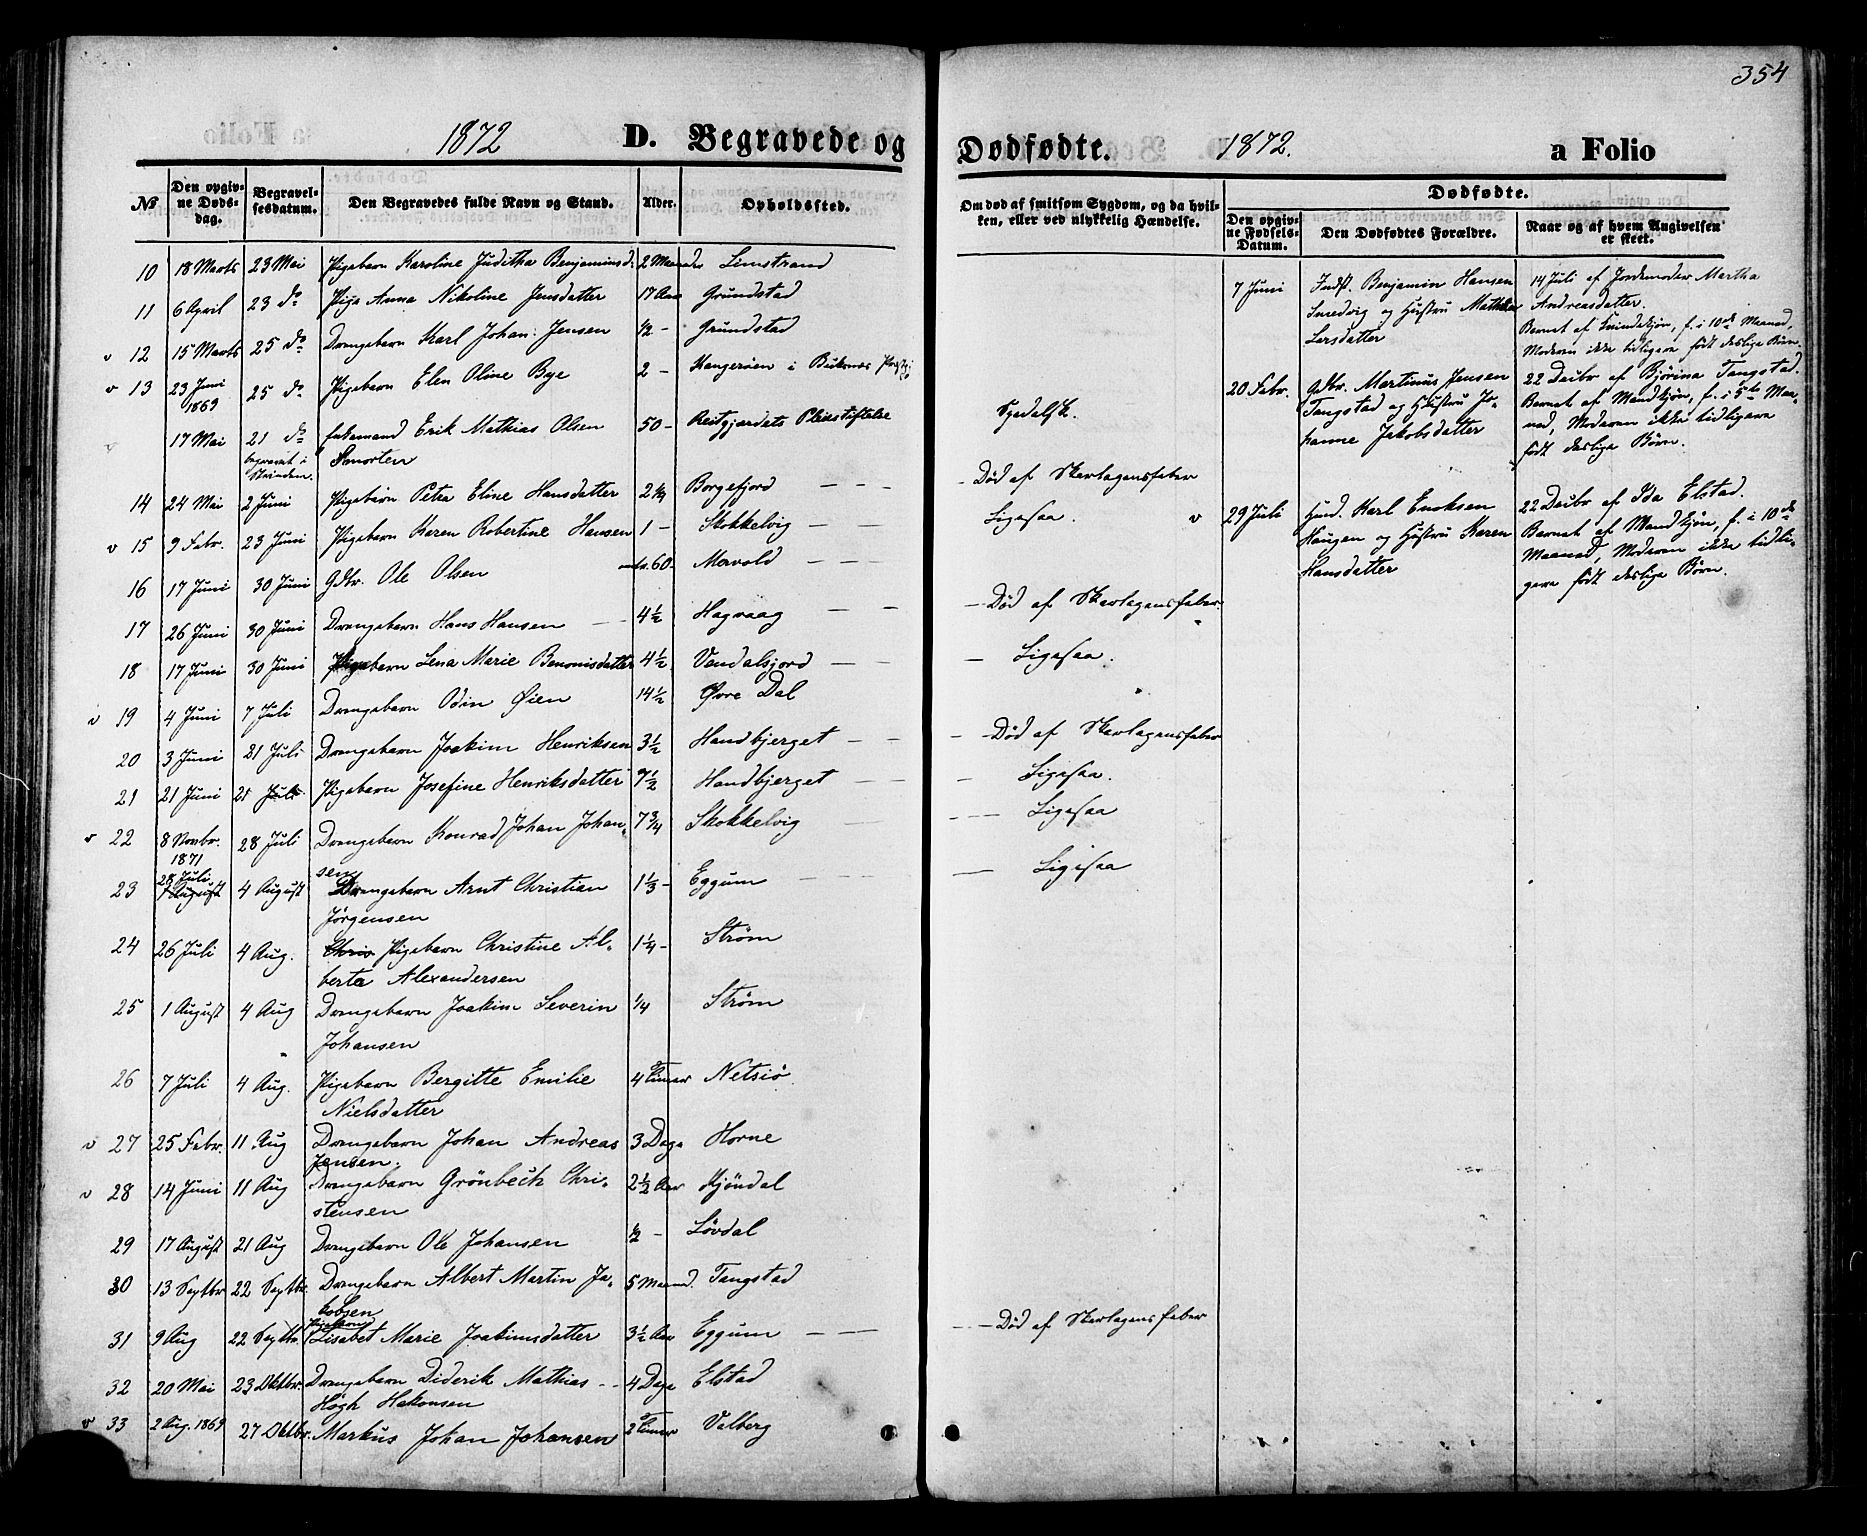 354
1872 D. Begravede og
Dødfødte. 1872. a Folio
No
Den opgivne Døds-dag.
Begravel-sesdatum.
Den Begravedes fulde Navn og Stand.
Alder.
Opholdssted.
Om død af smitsom Sygdom, og da hvil-
ken, eller ved ulykkelig Hændelse.
Dødfødte.
Den opgiv-ne Fødsels-Datum.
Den Dødfødtes Forældre.
Naar og af hvem Angivelsen er skeet.
10 18 Marts 23 Mai Pigebarn Karoline Juditha Benjaminsd. 2 Maander Limstrand
11 6 April 23 do Pige Anna Nikoline Jensdatter 17 Aar Grundstad
v 12 15 Marts 25 do Drengebarn Karl Johan Jensen ½ - Grundstad
v 13 23 Juni 1869 25 do Pigebarn Elen Oline Bye 2 - Hangerøen i Buknes
17 Mai 21 do begravet i Enkemand Erik Mathias Olsen 50 - Reitgjerdets Pleiestiftelse Spedalsk.
Smorten
14 24 Mai 2 Juni Pigebarn Petra Eline Hansdatter 2 ¼ Borgefjord — — - Død af Skarlagensfeber
v 15 9 Febr. 23 Juni Pigebarn Karen Robertine Hansen 1 - Skokkelvig — — Ligesaa.
16 17 Juni 30 Juni Gdbr. Ole Olsen 60 - Mærvold — — —
17 26 Juni 30 Juni Drengebarn Hans Hansen — — 4½ Hagvaag — — — Død af Skarlagensfeber
18 17 Juni 30 Juni Pigebarn Lena Marie Benonisdatter 4½ Vendalsjord — — — Ligesaa.
v 19 4 Juni 7 Juli Drengebarn Odin Øien 14½ Øvre Dal
20 3 Juni 21 Juli Drengebarn Joakim Henriksen 3½ Handbjerget — — — Død af Skarlagensfeber
21 21 Juni 21 Juli Pigebarn Josefine Henriksdatter 7½ Handbjerget — — — Ligesaa.
v 22 8 Novbr. 1871 28 Juli Drengebarn Konrad Johan Johan- 7¾ Skokkelvig — — — Ligesaa
sen
23 28 Juli 4 August Drengebarn Arnt Christian 1⅓ - Eggum — — — Ligesaa
Jørgensen
24 26 Juli 4 Aug. Pigebarn Christine Al- 1¼ - Strøm
berta Alexandersen
25 1 August 4 Aug Drengebarn Joakim Severin ¼ Strøm
Johansen
26 7 Juli 4 Aug. Pigebarn Bergitte Emilie 4 Timer Netsiö
Nielsdatter
v 27 25 Febr. 11 Aug Drengebarn Johan Andreas 3 Dage Horne
Jensen.
v 28 14 Juni 11 Aug Drengebarn Grönbech Chri- 2½ Aar Mjöndal
stensen
29 17 August 21 Aug Drengebarn Ole Johansen ½ - Lövdal
30 13 Septbr 22 Septbr. Drengebarn Albert Martin Ja- 5 Maaned. Tangstad
kobsen
31 9 Aug 22 Septbr. Pigebarn Lisabet Marie Joakimsdatter 3½ Aar Eggum — — — Død af Skarlagensfeber
32 20 Mai 23 Oktbr. Drengebarn Diderik Mathias - - 4 Dage Elstad
Høgh Hakonsen
v 33 2 Aug. 1869 27 Oktbr. Markus Johan Johansen 2 Timer Valberg
7 Juni Indst. Benjamin Hansen 14 Juli af Jordemoder Martha
Smedvig og Hustru Mathea Andreasdatter.
Larsdatter Barnet af Kvindekjøn, f. i 10de Maaned,
Moderen ikke tidligere født deslige Børn.
20 Febr. Gdbr. Martinus Jensen 22 Decbr af Bjørina Tangstad.
Tangstad og Hustru Jo- Barnet af Mandkjøn, f. i 5te Maa-
hanne Jakobsdatter ned, Moderen ikke tidligere
født deslige Børn.
v 29 Juli Husd. Karl Enoksen 22 Decbr af Ida Elstad.
Haugen og Hustru Karen Barnet af Mandkjøn, f. i 10de
Hansdatter Maaned, Moderen ikke tidli-
gere født deslige Børn.